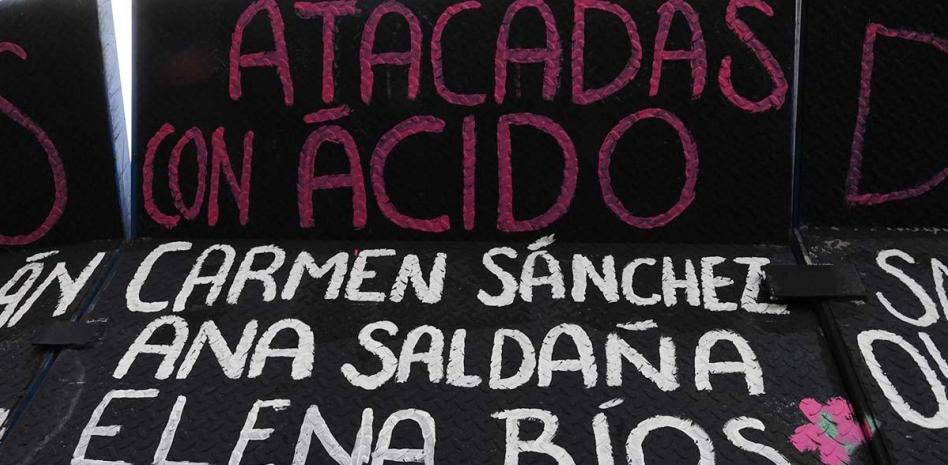 ATACADAS
CON ÁCIDO
CARMEN SÁNCHEZ
ANA SALDAÑA
ELENA RÍOS